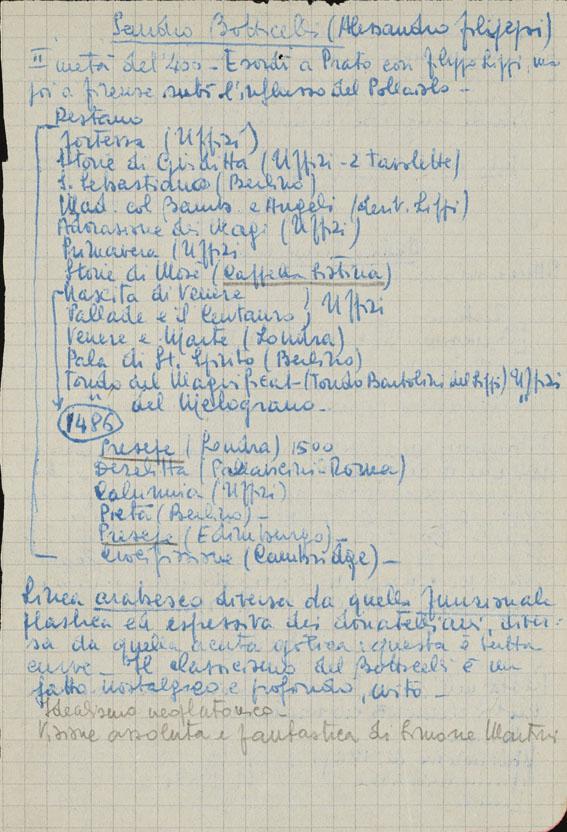 Sandro Botticelli (Alessandro Filippi)
II metà del '400 - Esordì a Prato con Filippo Lippi, ma
poi a Firenze subì l'influsso del Pollaiolo -
Restano
Fortezza (Uffizi)
Storie di Giuditta (Uffizi - 2 tavolette)
S. Sebastiano (Berlino)
Mad. col Bamb. e Angeli (deriv. Lippi)
Adorazione dei Magi (Uffizi)
Primavera (Uffizi
Storie di Mosè (Cappella Sistina)
Nascita di Venere
Pallade e il Centauro } Uffizi
Venere e Marte (Londra)
Pala di St. Spirito (Berlino)
Tondo del Magnificat - (Tondo Bartolini del Lippi) Uffizi
" del Melograno - "
1486
Presepe (Londra) 1500
Derelitta (Pallavicini - Roma)
Calunnia (Uffizi)
Pietà (Berlino) -
Presepe (Edimburgo) -
Crocifissione (Cambridge) -
Linea arabesco diversa da quella funzionale
plastica ed espressiva dei donatelliani, diver-
sa da quella acuta gotica: questa è tutta
curve - Il classicismo del Botticelli è un
fatto nostalgico e profondo, mito -
Idealismo neoplatonico -
Visione assoluta e fantastica di Simone Martini